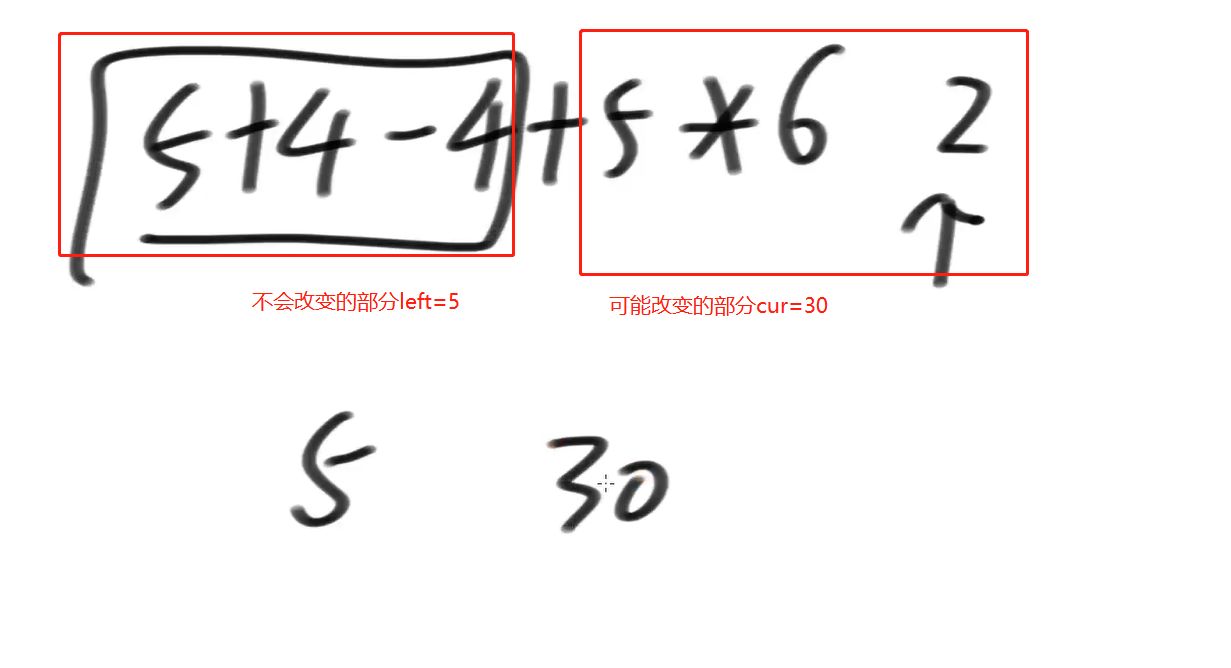 5+4-4+5*6 2
不会改变的部分left=5 可能改变的部分cur=30
5 30